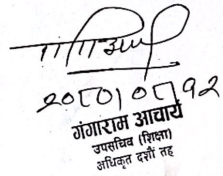 २०८०।०८।१२
गंगाराम आचार्य
उपसचिव (शिक्षा)
अधिकृत दशौं तह